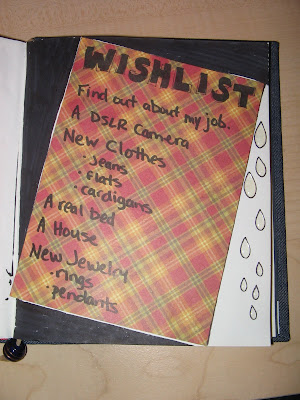 WISHLIST
Find out about my job.
A DSLR Camera
New Clothes
• jeans
• flats
• cardigans
A real bed
A House
New Jewelry
• rings
• pendants